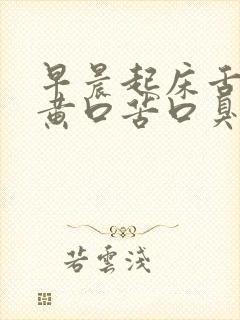 早晨起床舌
黄口苦口臭
若雲淺